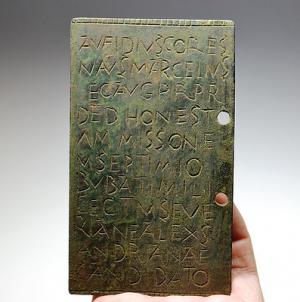 AVFIDIVSCORES
NIVSMARCELLVS
LEGAVGPRPR
DEDIHONEST
AMMISSIONE
MSEPTIMIO
BVBATIMILI
LEGIMSEVE
RIANEALEXS
ANDRIANAE
CANDIDATO